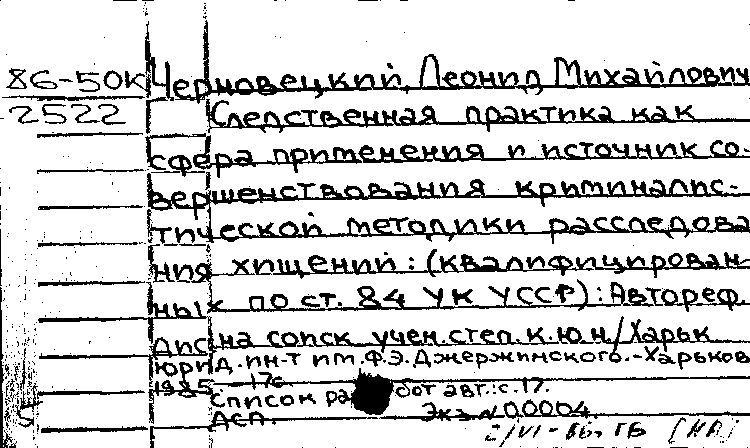 86-50к Черновецкий, Леонид Михайлович
2522 Следственная практика как
сфера применения и источник со-
вершенствования криминалис-
тической методики расследова
ния хищений: (квалифицирован
ных по ст. 84 УК УССР): Автореф.
дис на соиск учен. степ. к.ю.н./Харьк
юрид. ин-т им. Ф.Э. Джержинского.-Харьков
1985 -17с
Список работ авт.: с. 17.
Дсп. Экз № 00004.
2/VI-86. ГБ [НА]
5